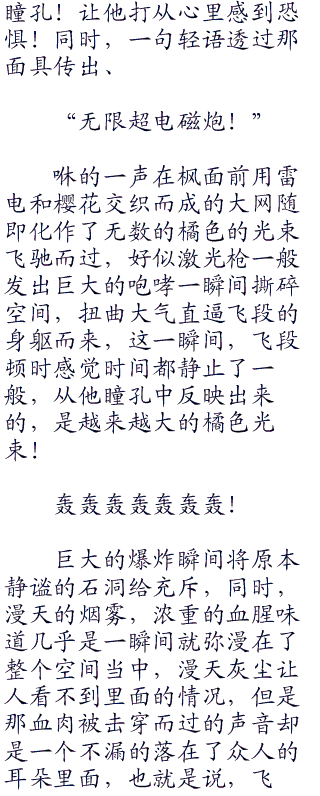 瞳孔！让他打从心里感到恐
惧！同时，一句轻语透过那
面具传出、
“无限超电磁炮！”
咻的一声在枫面前用雷
电和樱花交织而成的大网随
即化作了无数的橘色的光束
飞驰而过，好似激光枪一般
发出巨大的咆哮一瞬间撕碎
空间，扭曲大气直逼飞段的
身躯而来，这一瞬间，飞段
顿时感觉时间都静止了一
般，从他瞳孔中反映出来
的，是越来越大的橘色光
束！
轰轰轰轰轰轰轰！
巨大的爆炸瞬间将原本
静谧的石洞给充斥，同时，
漫天的烟雾，浓重的血腥味
道几乎是一瞬间就弥漫在了
整个空间当中，漫天灰尘让
人看不到里面的情况，但是
那血肉被击穿而过的声音却
是一个不漏的落在了众人的
耳朵里面，也就是说，飞